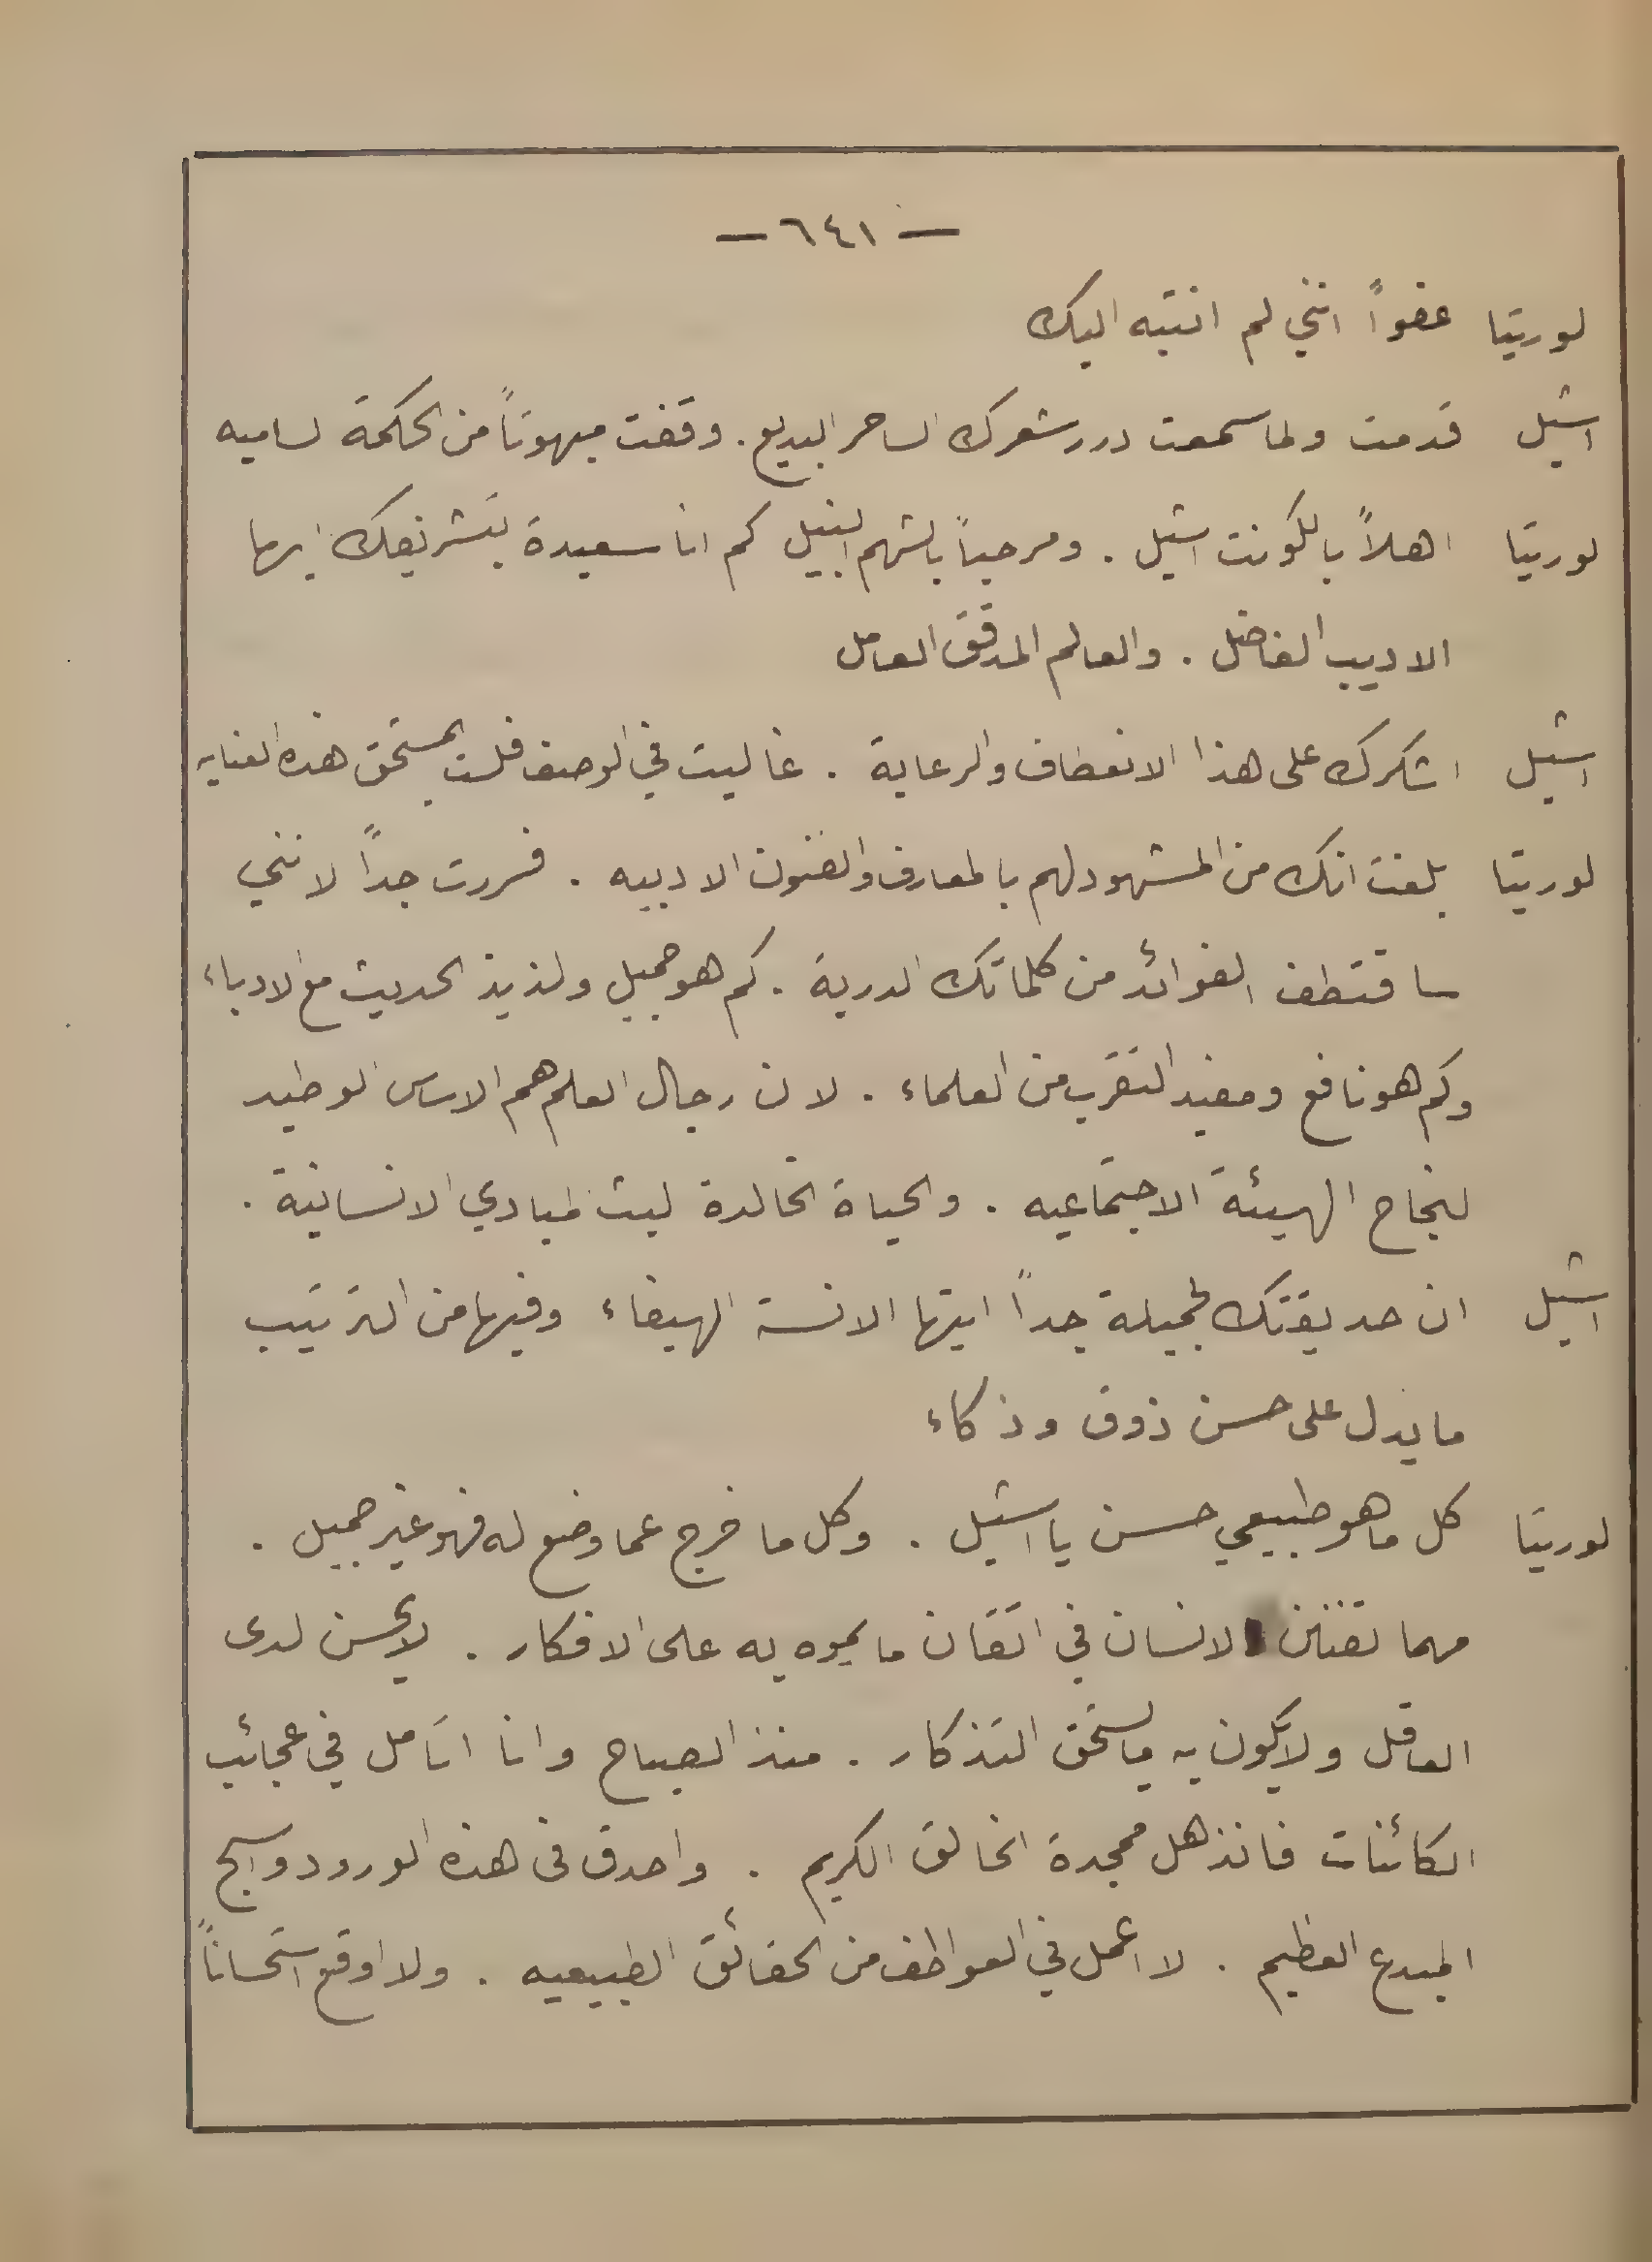 — ٦٤١ —
لوريتا عفواً انني لم انتبه اليك
اشيل قدمت ولما سمعت درر شعرك الساحر البديع . وقفت مبهوتاً من الحكمة لساميه
لوريتا اهلاً بالكونت اشيل . ومرحباً بالشهم النبيل كم انا سعيدة بتشريفك ايها
الاديب الفاضل . والعالم المدقق العامل
اشيل اشكرك على هذا الانعطاف والرعاية . غاليت في الوصف فلست بمستحق هذه العنايه
لوريتا بلغت انك من المشهود لهم بالمعارف والفنون الادبيه . فسررت جداً لانني
ساقتطف الفوائد من كلماتك الدرية . كم هو جميل ولذيذ الحديث مع الادباء
وكم هو نافع ومفيد التقرب من العلماء . لان رجال العلم هم الاساس الوطيد
لنجاح الهيئة الاجتماعيه . والحياة الخالدة لبث مبادي الانسانية .
اشيل ان حديقتك لجميلة جداً ايتها الانسة الهيفاء وفيها من الترتيب
ما يدل على حسن ذوق وذكاء
لوريتا كل ما هو طبيعي حسن يا اشيل . وكل ما خرج عما وضع له فهو غير جميل .
مهما تفنن الانسان في اتقان ما يموه به على الافكار . لا يحسن لدى
العاقل ولا يكون به ما يستحق التذكار . منذ الصباح وانا اتامل في عجائب
الكائنات فانذهل ممجدة الخالق الكريم . واحدق في هذه الورود واسبح
المبدع العظيم . لا اعمل في العواطف من الحقائق الطبيعيه . ولا اوقع استحساناً